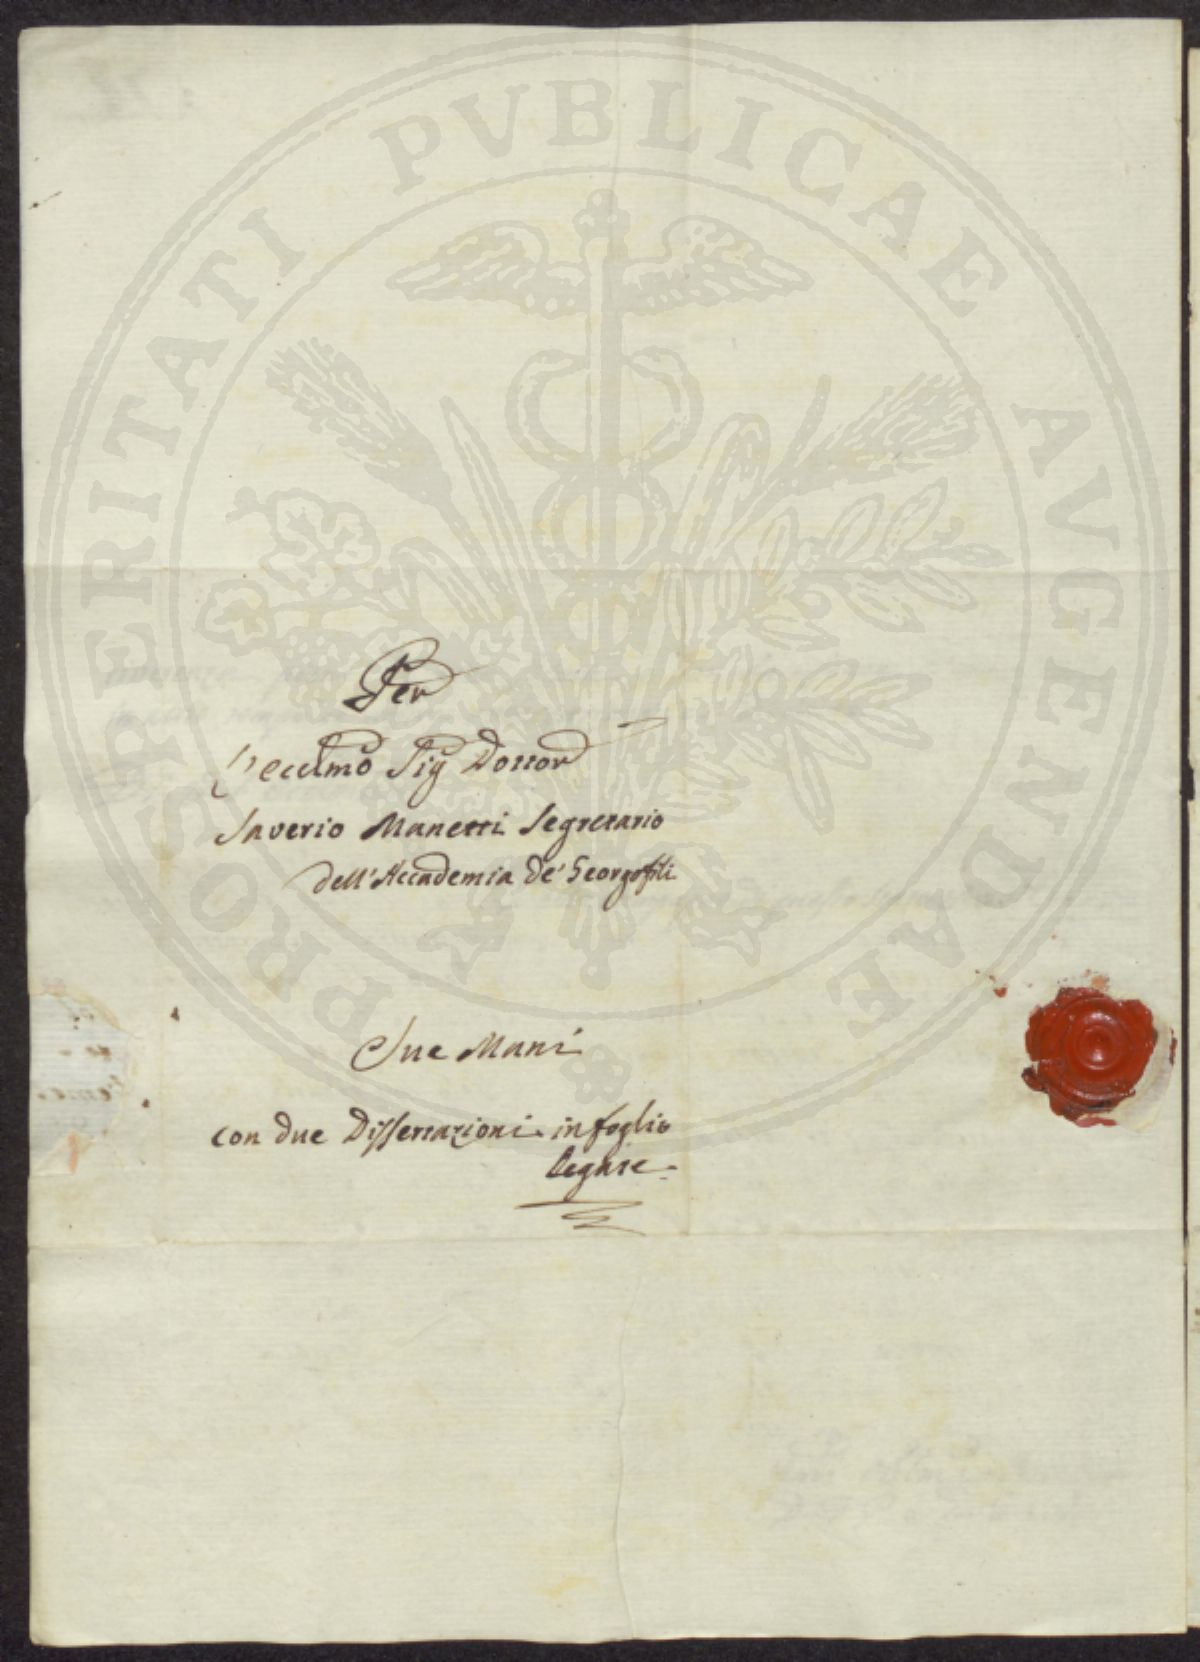 PROSPERITATI PUBLICAE AVGENDAE
Per
L'eccelmo Sig Dottor
Saverio Manetti Segretario
dell'Accademia de' Georgofili
Sue Mani
con due Dissertazioni in foglio
legate